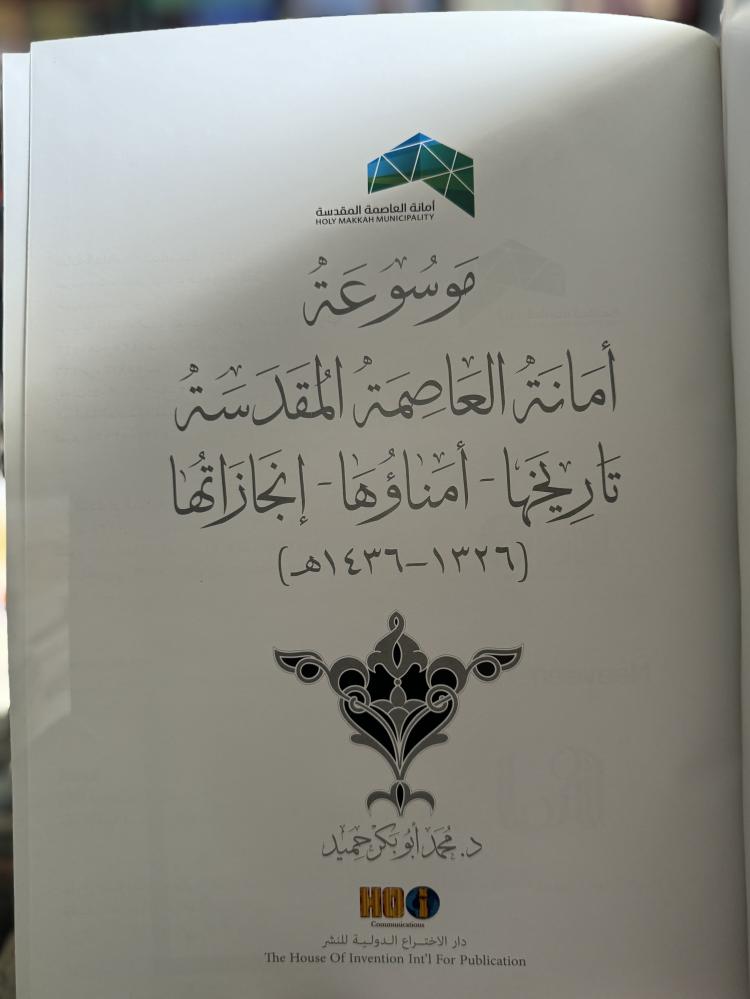 أمانة العاصمة المقدسة
HOLY MAKKAH MUNICIPALITY
مَوسُوعَةُ
أمَانَةُ العَاصِمَةُ المُقَدَسَةُ
تَارِيخَها - أمَناؤُهَا - إنجَازَاتُها
(١٣٢٦-١٤٣٦هـ)
د. محمد أبو بكر حميد
HOi
Communications
دار الاختراع الدولية للنشر
The House Of Invention Int'l For Publication